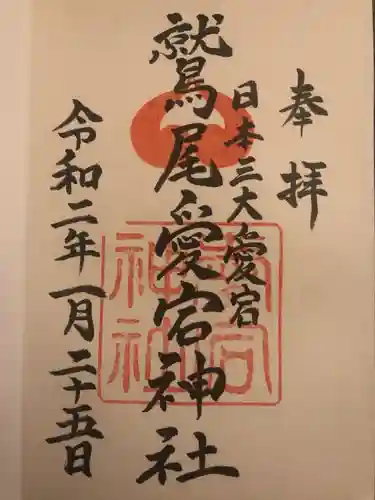 奉拝
日本三大愛宕
鷲尾愛宕神社
令和二年一月二十五日
愛宕神社